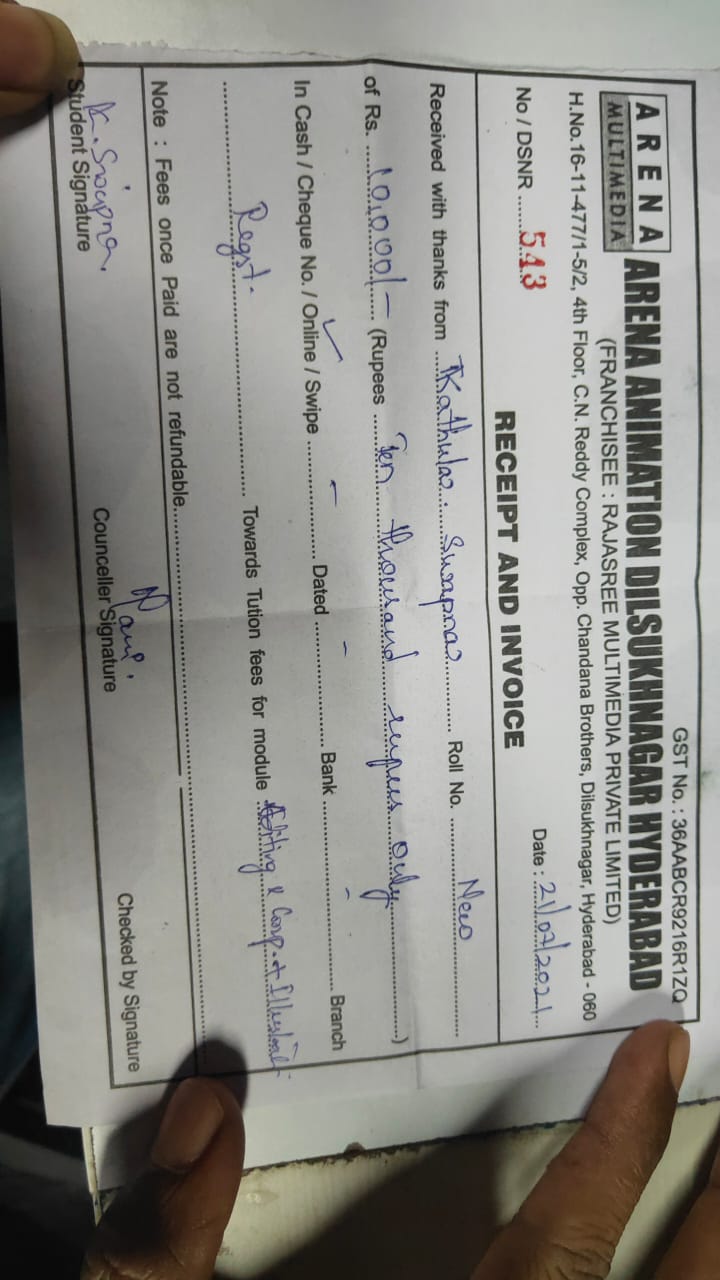 GST No. : 36AABCR9216R1ZQ
ARENA MULTIMEDIA ARENA ANIMATION DILSUKHNAGAR HYDERABAD
(FRANCHISEE : RAJASREE MULTIMEDIA PRIVATE LIMITED)
H.No.16-11-477/1-5/2, 4th Floor, C.N. Reddy Complex, Opp. Chandana Brothers, Dilsukhnagar, Hyderabad - 060
No / DSNR ...... 543 Date : 21/07/2021
RECEIPT AND INVOICE
Received with thanks from Kathula. Swapna Roll No. New
of Rs. 10,000/- (Rupees Ten thousand rupees only)
In Cash / Cheque No. / Online / Swipe ✓ - Dated - Bank - Branch
Regst. Towards Tution fees for module Editing & Comp. +
Note : Fees once Paid are not refundable.
K. Swapna
Student Signature Counceller Signature Checked by Signature